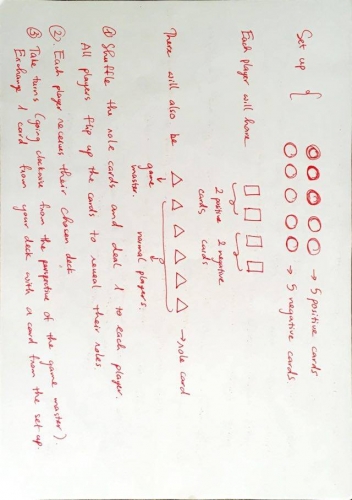 Set up {
→ 5 positive cards
→ 5 negative cards
Each player will have
2 positive cards
2 negative cards
There will also be
→ role card
game master.
normal players.
① Shuffle the role cards and deal 1 to each player.
All players flip up the cards to reveal their roles.
②. Each player receives their chosen deck
③ Take turns (going clockwise from the perspective of the game master).
Exchange 1 card from your deck with a card from the set up.